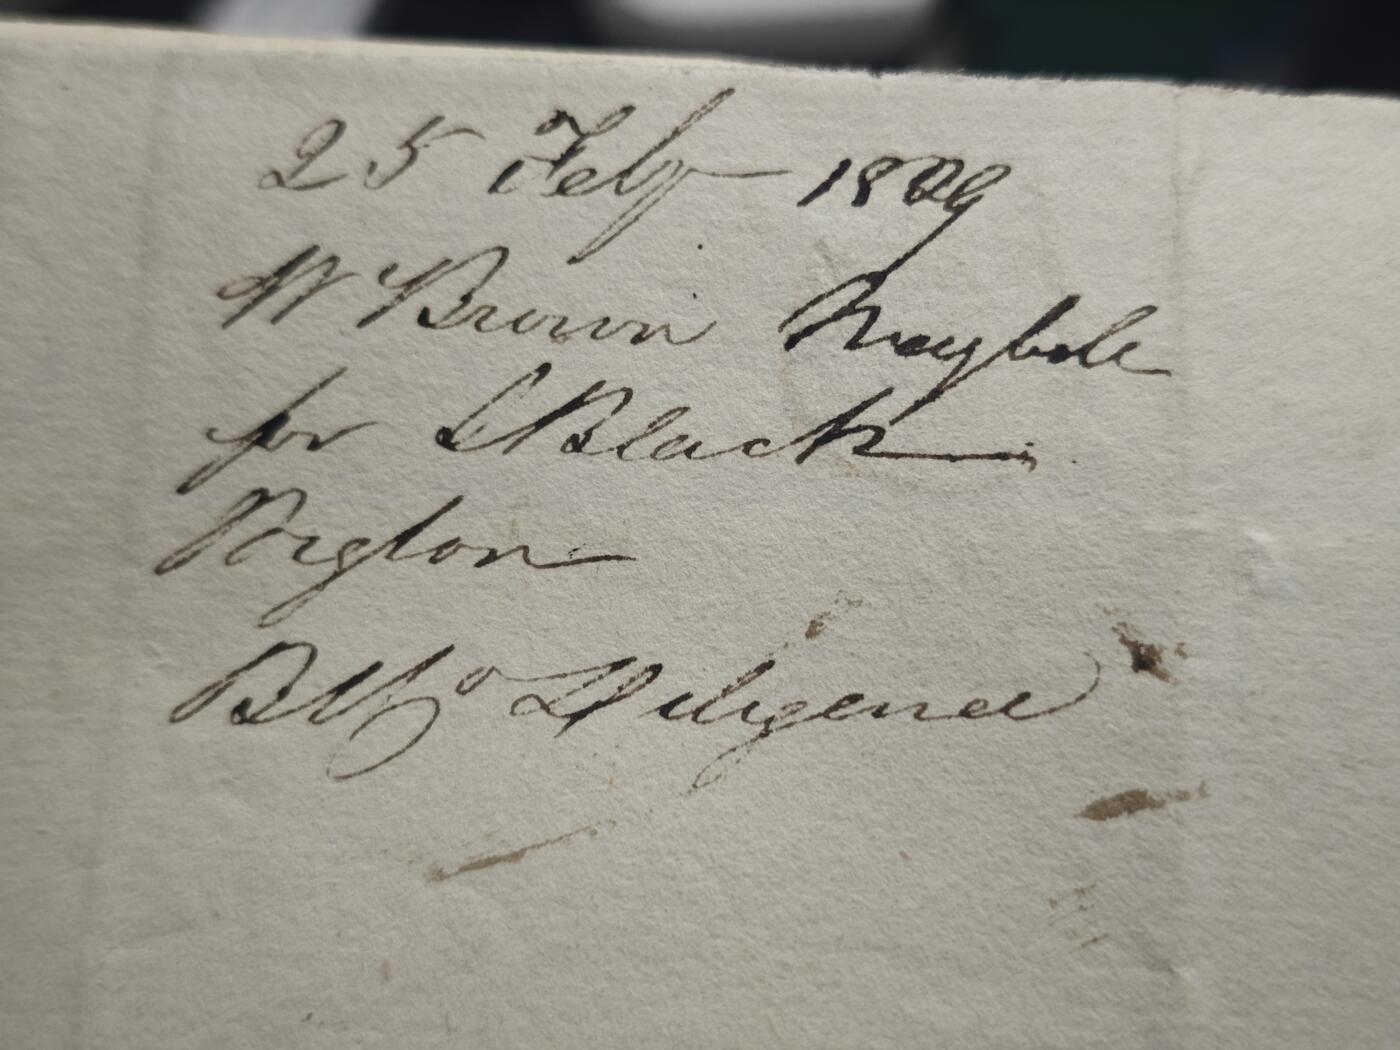 25 Feby 1829
W Brown Maybole
for S Black
Wigton
Diligence